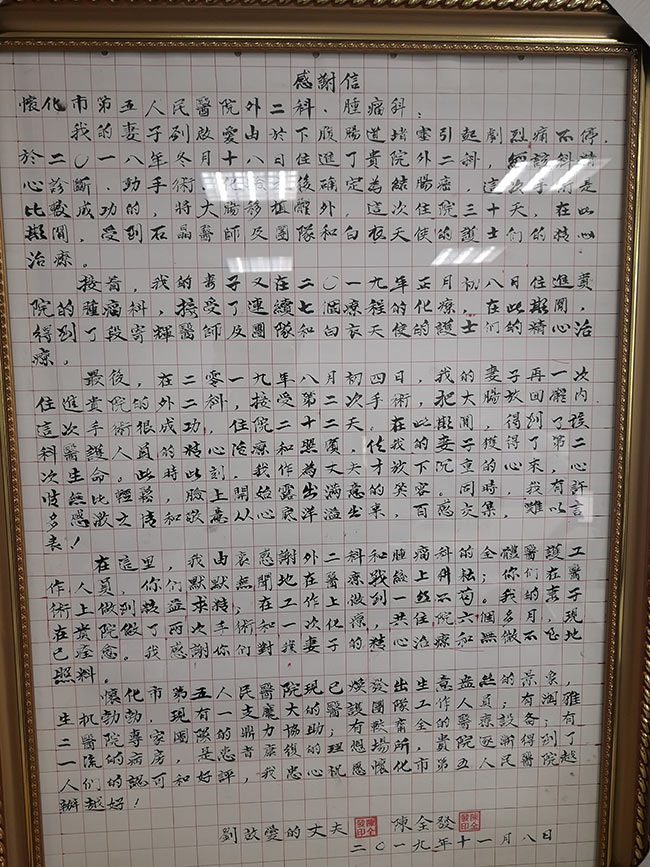 感謝信
懷化市第五人民醫院外二科、腫瘤科：
我的妻子刘啟愛由於下腹腸道堵塞引起劇烈痛不停，
於二〇一八年冬月十八日住進了貴院外二科，經該科精
心診斷、動手術、化後確定為結腸癌，這次手術是
比較成功的，將大腸移植體外，這次住院三十天，在此
期間，受到石晶醫師及團隊和白衣天使的護士们的精心
治療。
接着，我的妻子又在二〇一九年正月初八日住進貴
院的腫瘤科，接受了連續七個療程的化療，在此期間，
得到了段寄輝醫師及團隊和白衣天使的護士们的精心治
療。
最後，在二零一九年八月初四日，我的妻子再一次
住進貴院的外二科，接受第二次手術，把大腸放回體内，
這次手術很成功，住院二十二天，在此期間，得到了該
科醫護人員的精心治療和照顧，使我的妻子獲得了第二
次生命。此時此刻，我作為丈夫才放下沉重的心來，心
情無比輕鬆，臉上開始露出滿意的笑容。同時，我有許
多感激之情和敬意从心底洋溢出來，百感交集，難以言
表！
在這里，我由衷感謝外二科和腫瘤科的全體醫護工
作人員，你们默默無聞地在醫療戰線上耕耘；你们在醫
術上做到精益求精；在工作上做到一丝不苟。我的妻子
在貴院做了两次手術和一次化療，共住院六個多月，現
已痊愈。我感謝你们對我妻子的精心治療和無微不至地
照料。
懷化市第五人民醫院現已煥發出生意盎然的景象，
生机勃勃，現有一支龐大的醫護團隊工作人員；有湘雅
二醫院專家團隊的鼎力協助；有較齊全的醫療設备；有
一流的病房，是患者康復的理想場所，貴院逐漸得到了
人们的認可和好評，我忠心祝愿懷化市第五人民醫院越
辦越好！
劉啟愛的丈夫 陳全發
二〇一九年十一月八日